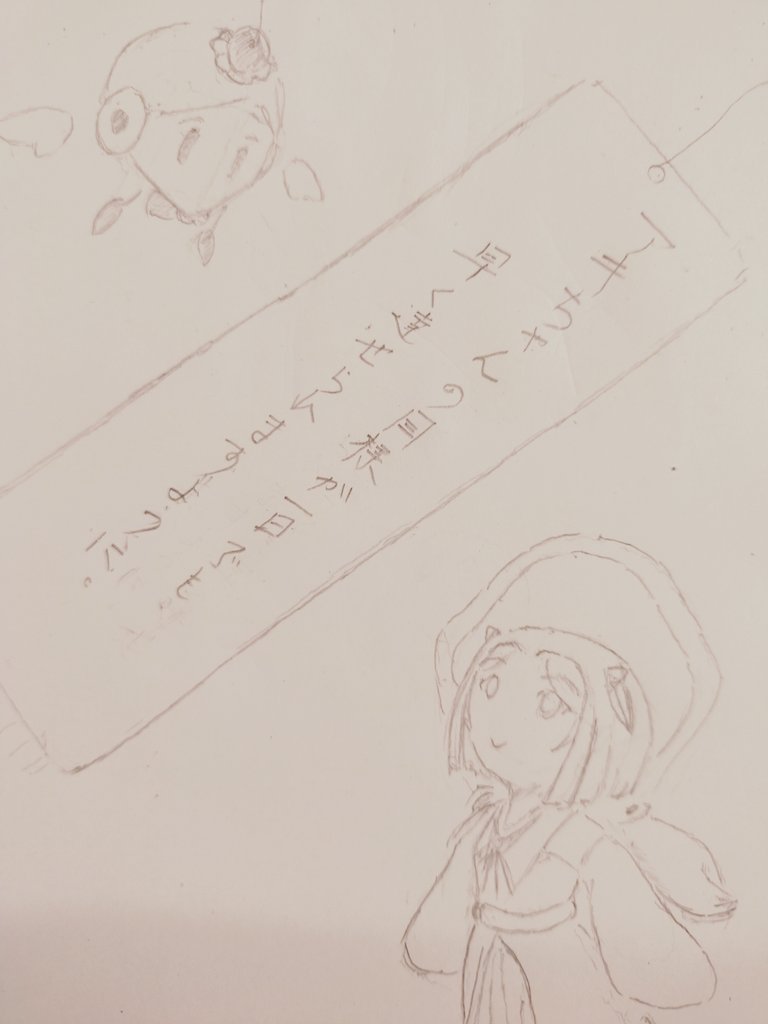 アキちゃんの目標が一日でも
早く達せられますように。